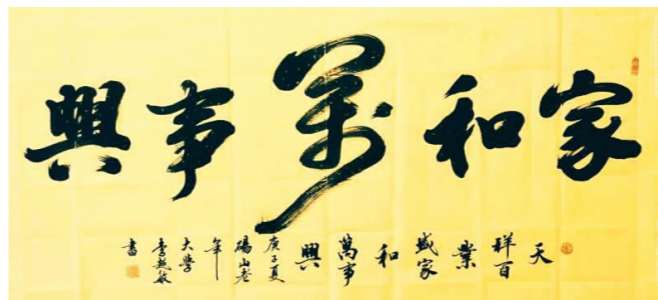 家和萬事興
天祥百業盛家和萬事興 庚子夏 碭山老年大學 李敏書